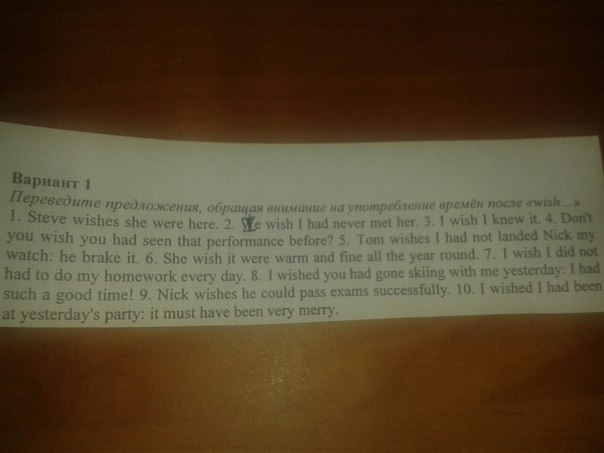 Вариант 1
Переведите предложения, обращая внимание на употребление времён после «wish...»
1. Steve wishes she were here. 2. We wish I had never met her. 3. I wish I knew it. 4. Don't
you wish you had seen that performance before? 5. Tom wishes I had not landed Nick my
watch: he brake it. 6. She wish it were warm and fine all the year round. 7. I wish I did not
had to do my homework every day. 8. I wished you had gone skiing with me yesterday: I had
such a good time! 9. Nick wishes he could pass exams successfully. 10. I wished I had been
at yesterday's party: it must have been very merry.